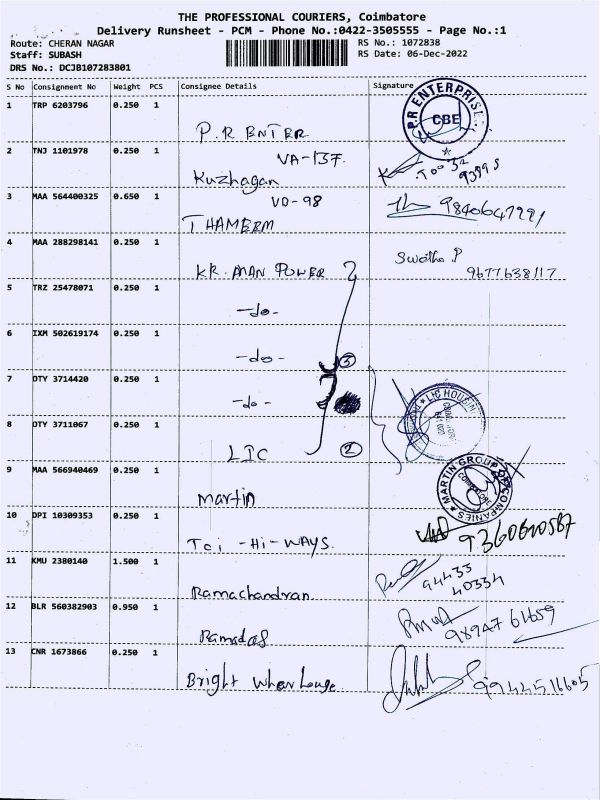 THE PROFESSIONAL COURIERS, Coimbatore
Delivery Runsheet - PCM - Phone No.:0422-3505555 - Page No.:1
Route: CHERAN NAGAR
Staff: SUBASH
DRS No.: DCJB107283801
RS No.: 1072838
RS Date: 06-Dec-2022
S No Consignment No Weight PCS Consignee Details Signature
1 TRP 6203796 0.250 1 P.R ENTER
P.R ENTERPRISE CBE
2 TNJ 1101978 0.250 1 Kuzhagan VA-137.
3 MAA 564400325 0.650 1 THAMERM VD-98 9840647291
4 MAA 288298141 0.250 1 KR. MAN POWER Swetha P 9677638117
5 TRZ 25478071 0.250 1 -do-
6 IXM 502619174 0.250 1 -do- 3
7 DTY 3714420 0.250 1 -do-
8 DTY 3711067 0.250 1 LIC 2
LIC HOUSING
9 MAA 566940469 0.250 1 Martin
MARTIN GROUP OF COMPANIES COIMBATORE
10 DPI 10309353 0.250 1 Tci -Hi-WAYS.
11 KMU 2380140 1.500 1 Ramachandran. 94433 40334
12 BLR 560382903 0.950 1 Ramadas 98947 61659
13 CNR 1673866 0.250 1 Bright 9944516605